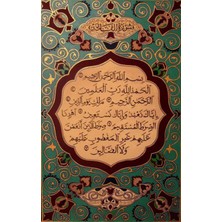 سورة الفاتحة
بسم الله الرحمن الرحيم
الحمد لله رب العلمين
الرحمن الرحيم ملك يوم الدين
إياك نعبد وإياك نستعين اهدنا
الصرط المستقيم صرط الذين أنعمت
عليهم غير المغضوب عليهم
ولا الضالين